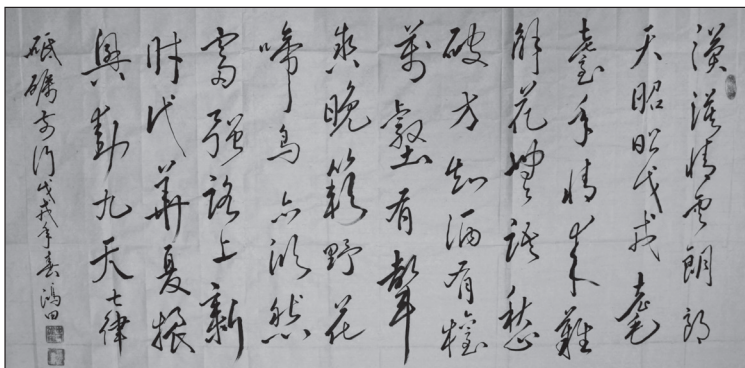 漠漠晴雲朗朗
天昭昭戊戌耄
耋年情來難
解花無語愁
破方知酒有權
萬壑有聲
爽晚籟野花
啼鳥亦欣然
富强路上新
时代華夏振
興動九天 七律
砥礪前行 戊戌年春 鴻田